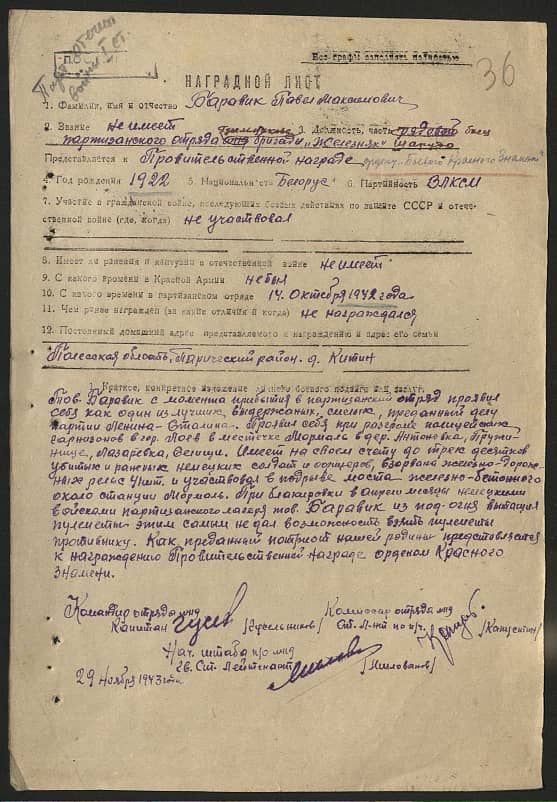 Парт. Отечест. войны I ст.
П.О.
Все графы заполнять полностью
36
НАГРАДНОЙ ЛИСТ
1. Фамилия, имя и отчество Баравик Павел Максимович
2. Звание не имеет 3. Должность, часть рядовой боец
партизанского отряда бригады „Железняк"
Представляется к Провительственной награде ордену „Боевого Красного Знамени"
4. Год рождения 1922 5. Национальность Белорус 6. Партийность ВЛКСМ
7. Участие в гражданской войне, последующих боевых действиях по защите СССР и отече-
ственной войне (где, когда) не участвовал
8. Имеет ли ранения и контузии в отечественной войне не имеет
9. С какого времени в Красной Армии не был
10. С какого времени в партизанском отряде 14. Октября 1942 года
11. Чем ранее награжден (за какие отличия и когда) не награждался
12. Постоянный домашний адрес представляемого к награждению и адрес его семьи
Полесская область, Паричский район д. Китин
1. Краткое, конкретное изложение личного боевого подвига или заслуг.
Тов. Баравик с момента прибытия в партизанский отряд проявил
себя как один из лучших, выдержаных, смелых, преданный делу
партии Ленина-Сталина. Проявил себя при разгроме полицейских
гарнизонов в гор. Лоев в местечке Мормаль в дер. Антоновка, Пружи-
нище, Лазаревка, Сеищи. Имеет на своем счету до трех десятков
убитых и раненых немецких солдат и офицеров, взорвано железно-дорож-
ных рельс 4 шт. и участвовал в подрыве моста железно-бетонного
около станции Мормаль. При блакировки в апреле месяцы немецкими
войсками партизанского лагеря тов. Баравик из под-огня вытащил
пулеметы-этим самым не дал возможность взять пулеметы
противнику. Как преданный патриот нашей родины представляется
к награждению Провительственной Награде орденом Красного
Знамени.
Командир отряда Комиссар отряда
Капитан /Сусельников/ Ст. Л-нт /Капустин/
Нач. штаба
Гв. Ст. Лейтенант /Милованов/
29 Ноября 1943 года